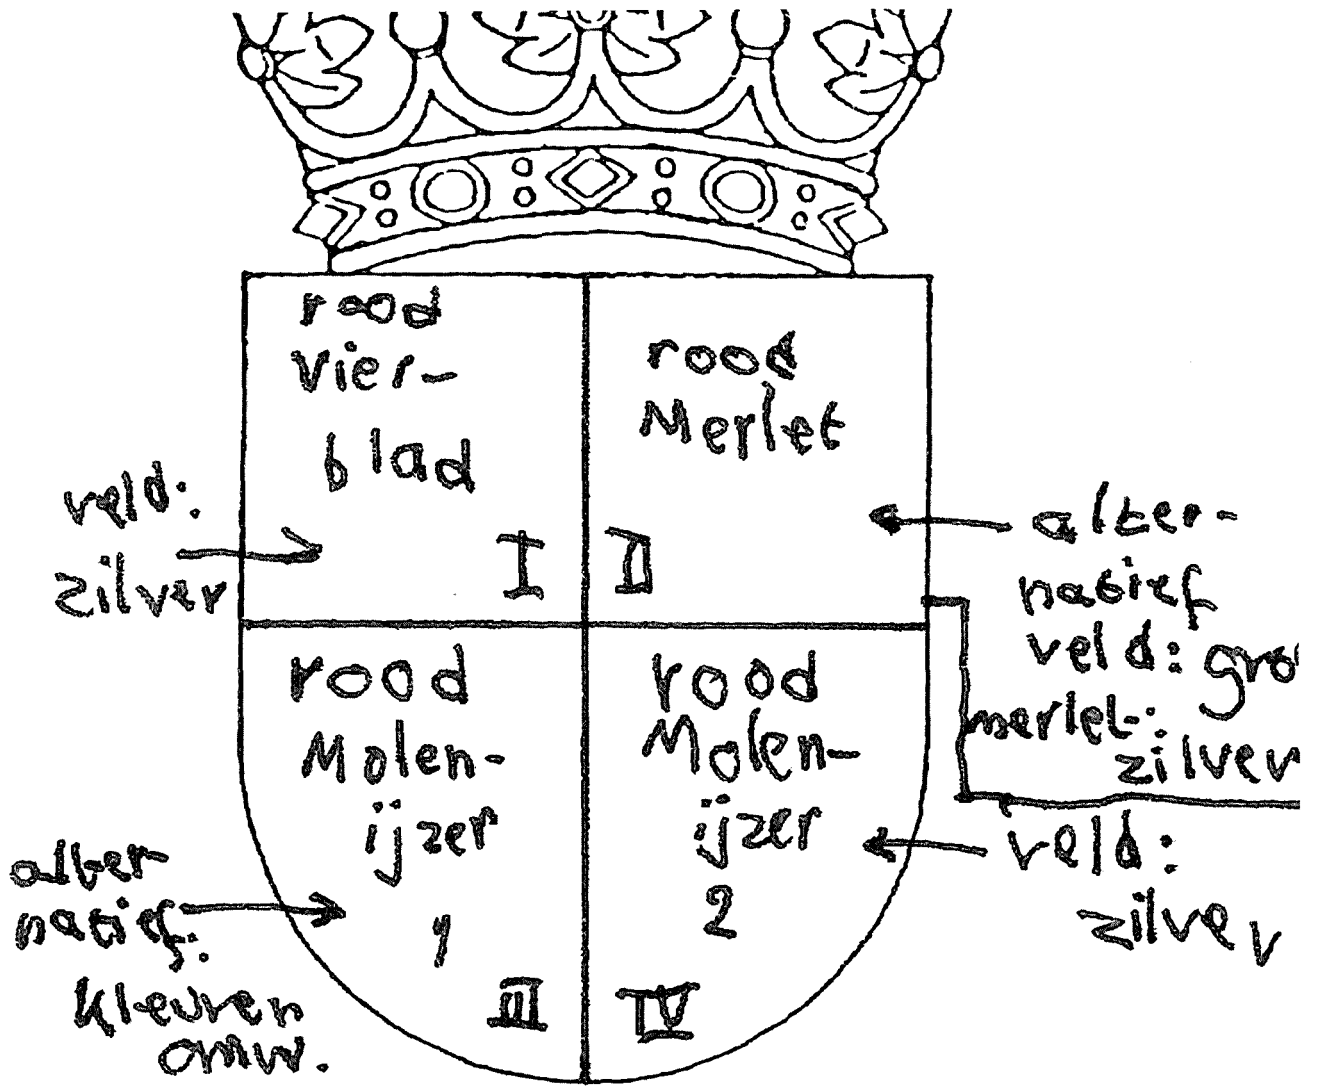 rood
Vier-
blad
I
rood
Merlet
II
veld:
zilver
alter-
natief
veld: gro
merlet:
zilver
rood
Molen-
ijzer
1
III
rood
Molen-
ijzer
2
IV
veld:
zilver
alter
natief:
kleuren
omw.